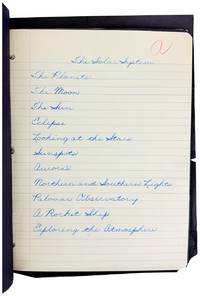 a
The Solar System
The Planets
The Moon
The Sun
Eclipse
Looking at the Stars
Sunspots
Auroras
Northern and Southern Lights
Palomar Observatory
A Rocket Ship
Exploring the Atmosphere